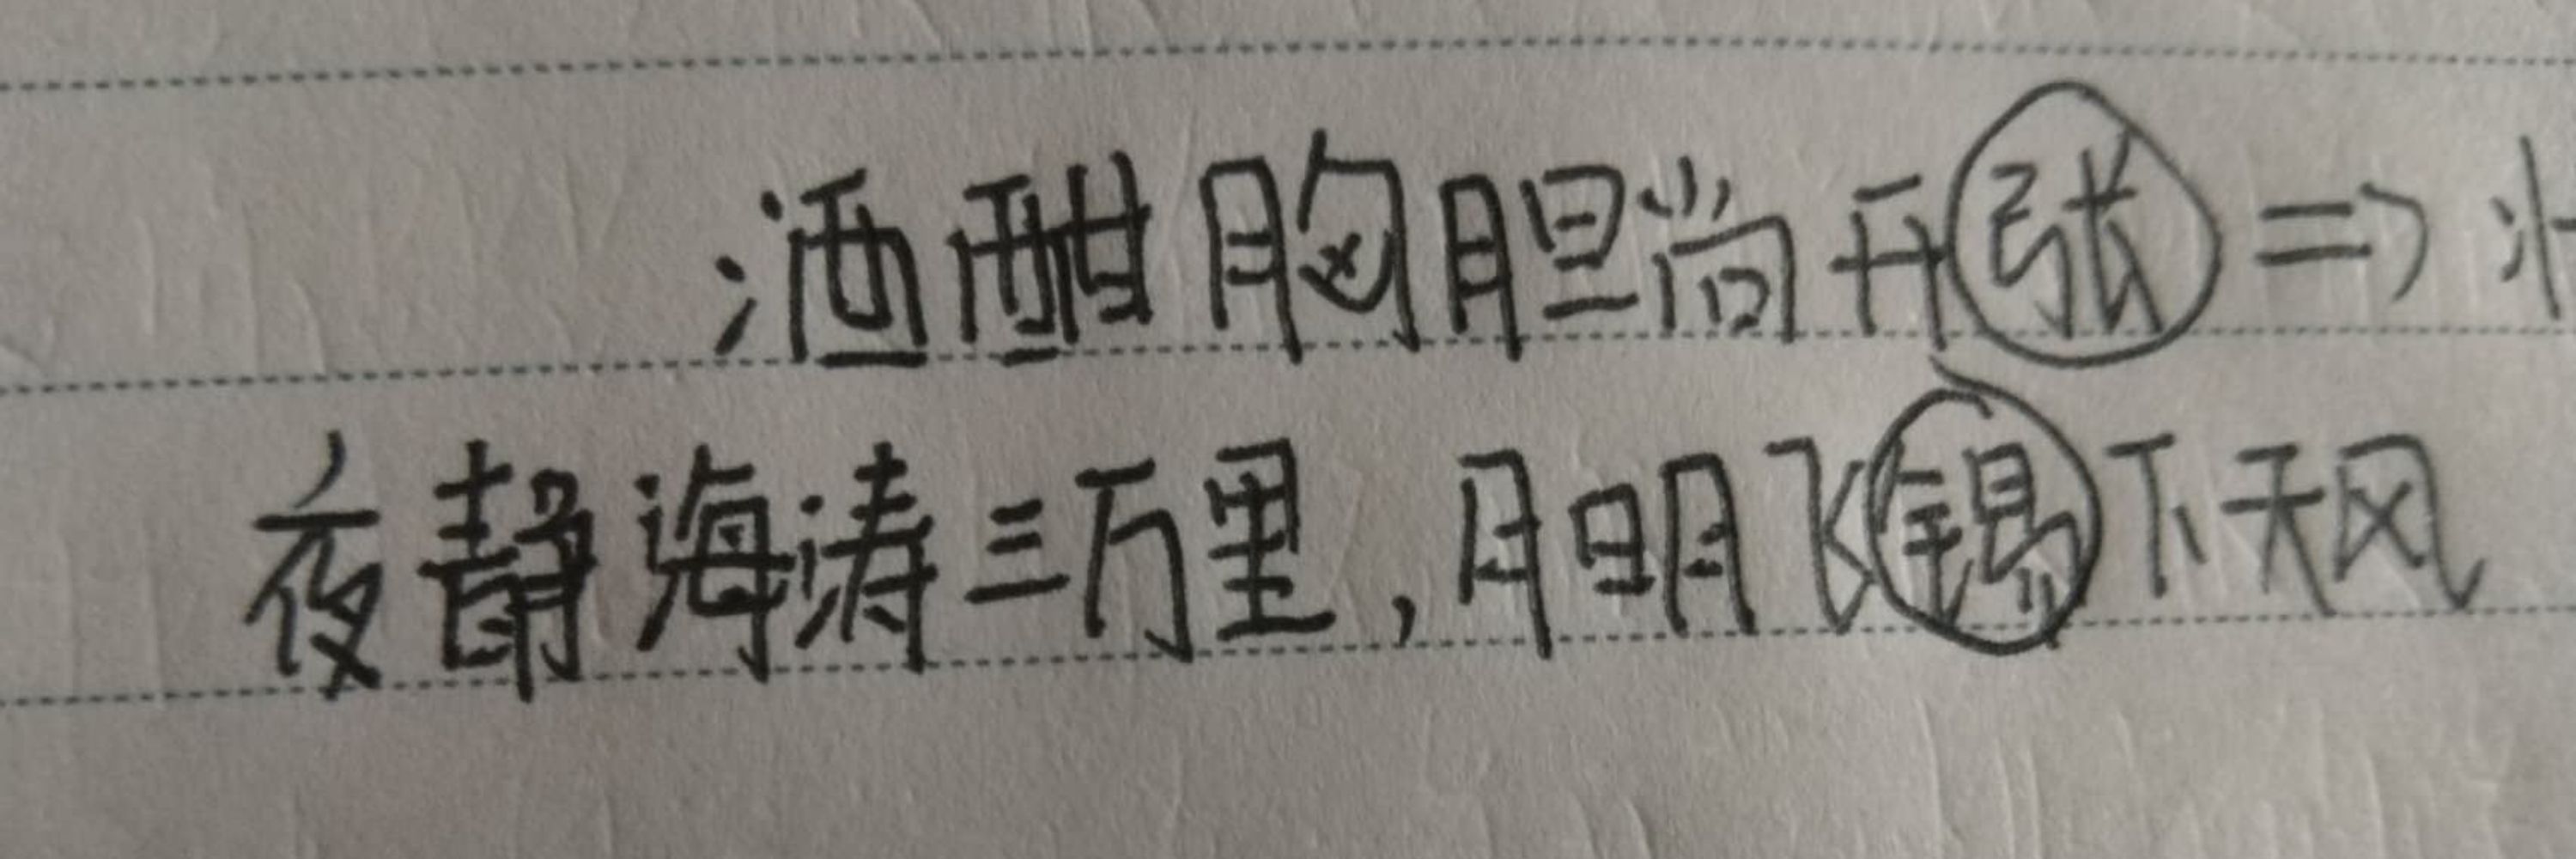 酒酣胸胆尚开张 =>
夜静海涛三万里,月明飞锡下天风